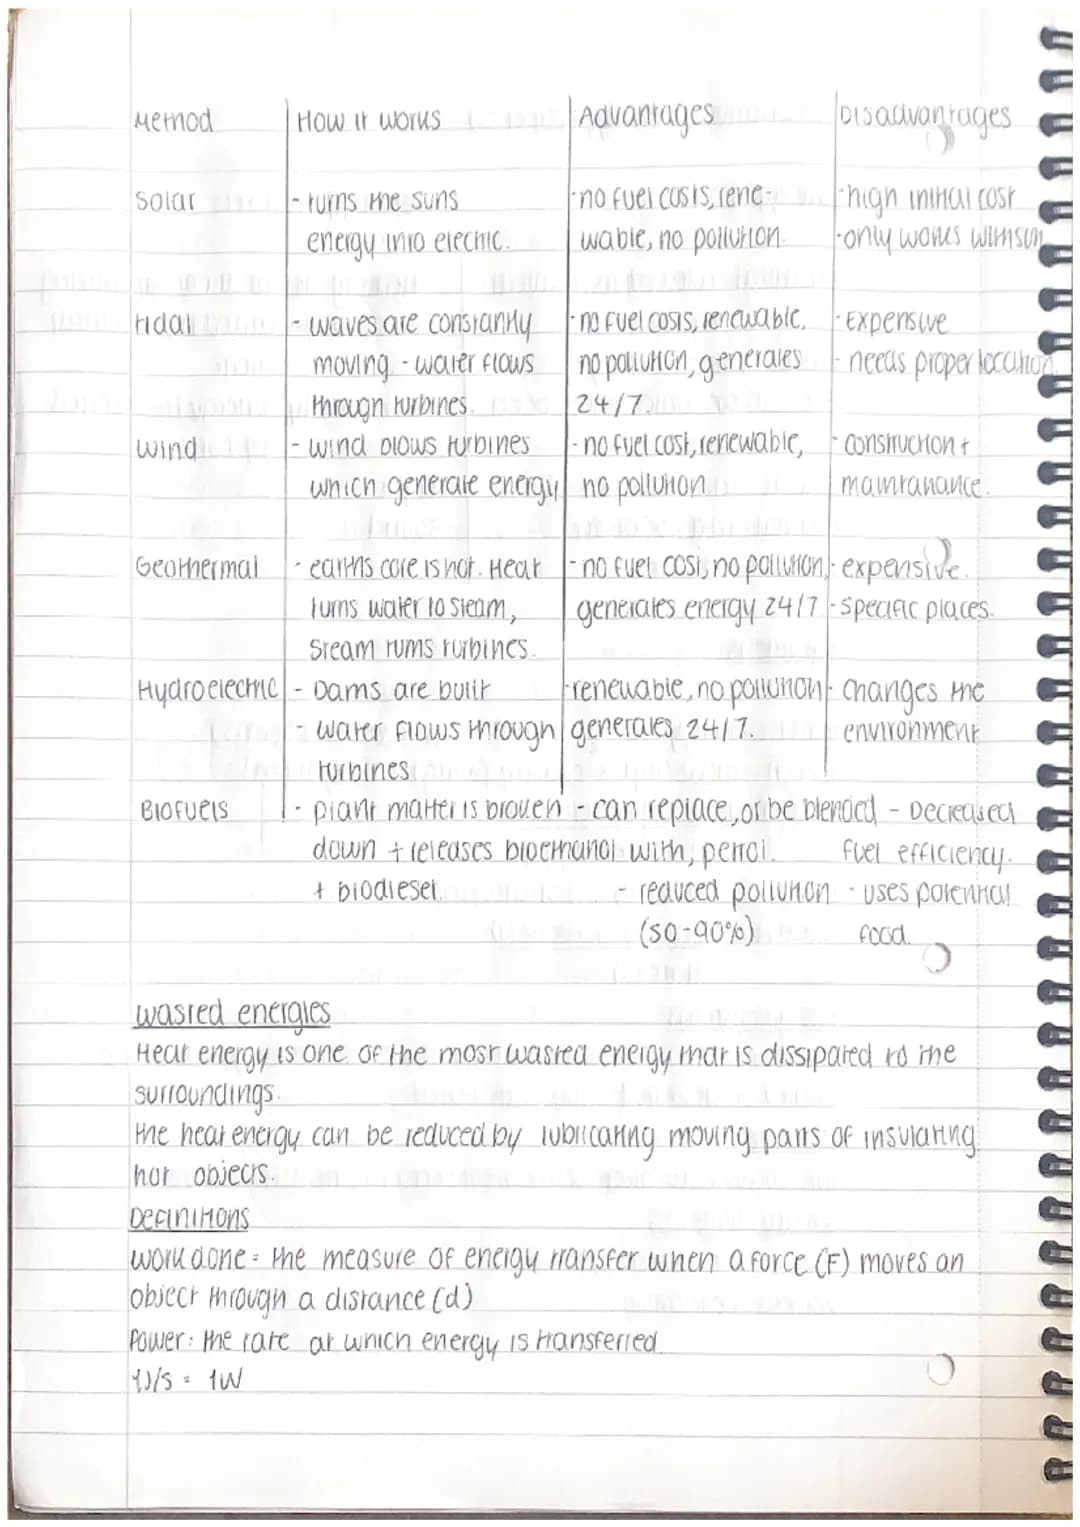 Method How it works Advantages Disadvantages
Solar - turns the suns - no fuel costs, rene- - high initial cost
energy into electric. wable, no pollution. - only works with sun
tidal - waves are constantly - no fuel costs, renewable, - Expensive
moving - water flows no pollution, generates - needs proper location.
through turbines. 24/7.
Wind - wind blows turbines - no fuel cost, renewable, - construction +
which generate energy no pollution. maintanance.
Geothermal - earths core is hot. Heat - no fuel cost, no pollution, - expensive.
turns water to steam, generates energy 24/7 - specific places.
steam turns turbines.
Hydroelectric - Dams are built - renewable, no pollution - Changes the
- water flows through generates 24/7. environment
turbines
Biofuels - plant matter is broken - can replace, or be blended - Decreased
down + releases bioethanol with, petrol. fuel efficiency.
+ biodiesel. - reduced pollution - uses potential
(50-90%) food.
wasted energies
Heat energy is one of the most wasted energy that is dissipated to the
surroundings.
the heat energy can be reduced by lubricating moving parts of insulating
hot objects.
Definitions
work done = the measure of energy transfer when a force (F) moves an
object through a distance (d)
Power: the rate at which energy is transferred
1J/s = 1W